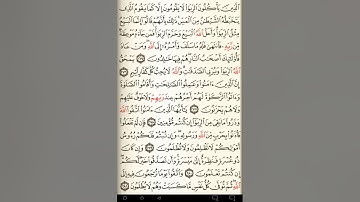 ٱلَّذِينَ يَأۡكُلُونَ ٱلرِّبَوٰاْ لَا يَقُومُونَ إِلَّا كَمَا يَقُومُ ٱلَّذِي
يَتَخَبَّطُهُ ٱلشَّيۡطَٰنُ مِنَ ٱلۡمَسِّۚ ذَٰلِكَ بِأَنَّهُمۡ قَالُوٓاْ إِنَّمَا ٱلۡبَيۡعُ
مِثۡلُ ٱلرِّبَوٰاْۗ وَأَحَلَّ ٱللَّهُ ٱلۡبَيۡعَ وَحَرَّمَ ٱلرِّبَوٰاْۚ فَمَن جَآءَهُۥ مَوۡعِظَةٞ
مِّن رَّبِّهِۦ فَٱنتَهَىٰ فَلَهُۥ مَا سَلَفَ وَأَمۡرُهُۥٓ إِلَى ٱللَّهِۖ وَمَنۡ عَادَ
فَأُوْلَٰٓئِكَ أَصۡحَٰبُ ٱلنَّارِۖ هُمۡ فِيهَا خَٰلِدُونَ ٢٧٥ يَمۡحَقُ
ٱللَّهُ ٱلرِّبَوٰاْ وَيُرۡبِي ٱلصَّدَقَٰتِۗ وَٱللَّهُ لَا يُحِبُّ كُلَّ كَفَّارٍ أَثِيمٍ ٢٧٦
إِنَّ ٱلَّذِينَ ءَامَنُواْ وَعَمِلُواْ ٱلصَّٰلِحَٰتِ وَأَقَامُواْ ٱلصَّلَوٰةَ
وَءَاتَوُاْ ٱلزَّكَوٰةَ لَهُمۡ أَجۡرُهُمۡ عِندَ رَبِّهِمۡ وَلَا خَوۡفٌ عَلَيۡهِمۡ
وَلَا هُمۡ يَحۡزَنُونَ ٢٧٧ يَٰٓأَيُّهَا ٱلَّذِينَ ءَامَنُواْ ٱتَّقُواْ ٱللَّهَ
وَذَرُواْ مَا بَقِيَ مِنَ ٱلرِّبَوٰٓاْ إِن كُنتُم مُّؤۡمِنِينَ ٢٧٨ فَإِن لَّمۡ تَفۡعَلُواْ
فَأۡذَنُواْ بِحَرۡبٖ مِّنَ ٱللَّهِ وَرَسُولِهِۦۖ وَإِن تُبۡتُمۡ فَلَكُمۡ رُءُوسُ
أَمۡوَٰلِكُمۡ لَا تَظۡلِمُونَ وَلَا تُظۡلَمُونَ ٢٧٩ وَإِن كَانَ
ذُو عُسۡرَةٖ فَنَظِرَةٌ إِلَىٰ مَيۡسَرَةٖۚ وَأَن تَصَدَّقُواْ خَيۡرٞ لَّكُمۡ
إِن كُنتُمۡ تَعۡلَمُونَ ٢٨٠ وَٱتَّقُواْ يَوۡمٗا تُرۡجَعُونَ فِيهِ إِلَى
ٱللَّهِۖ ثُمَّ تُوَفَّىٰ كُلُّ نَفۡسٖ مَّا كَسَبَتۡ وَهُمۡ لَا يُظۡلَمُونَ ٢٨١